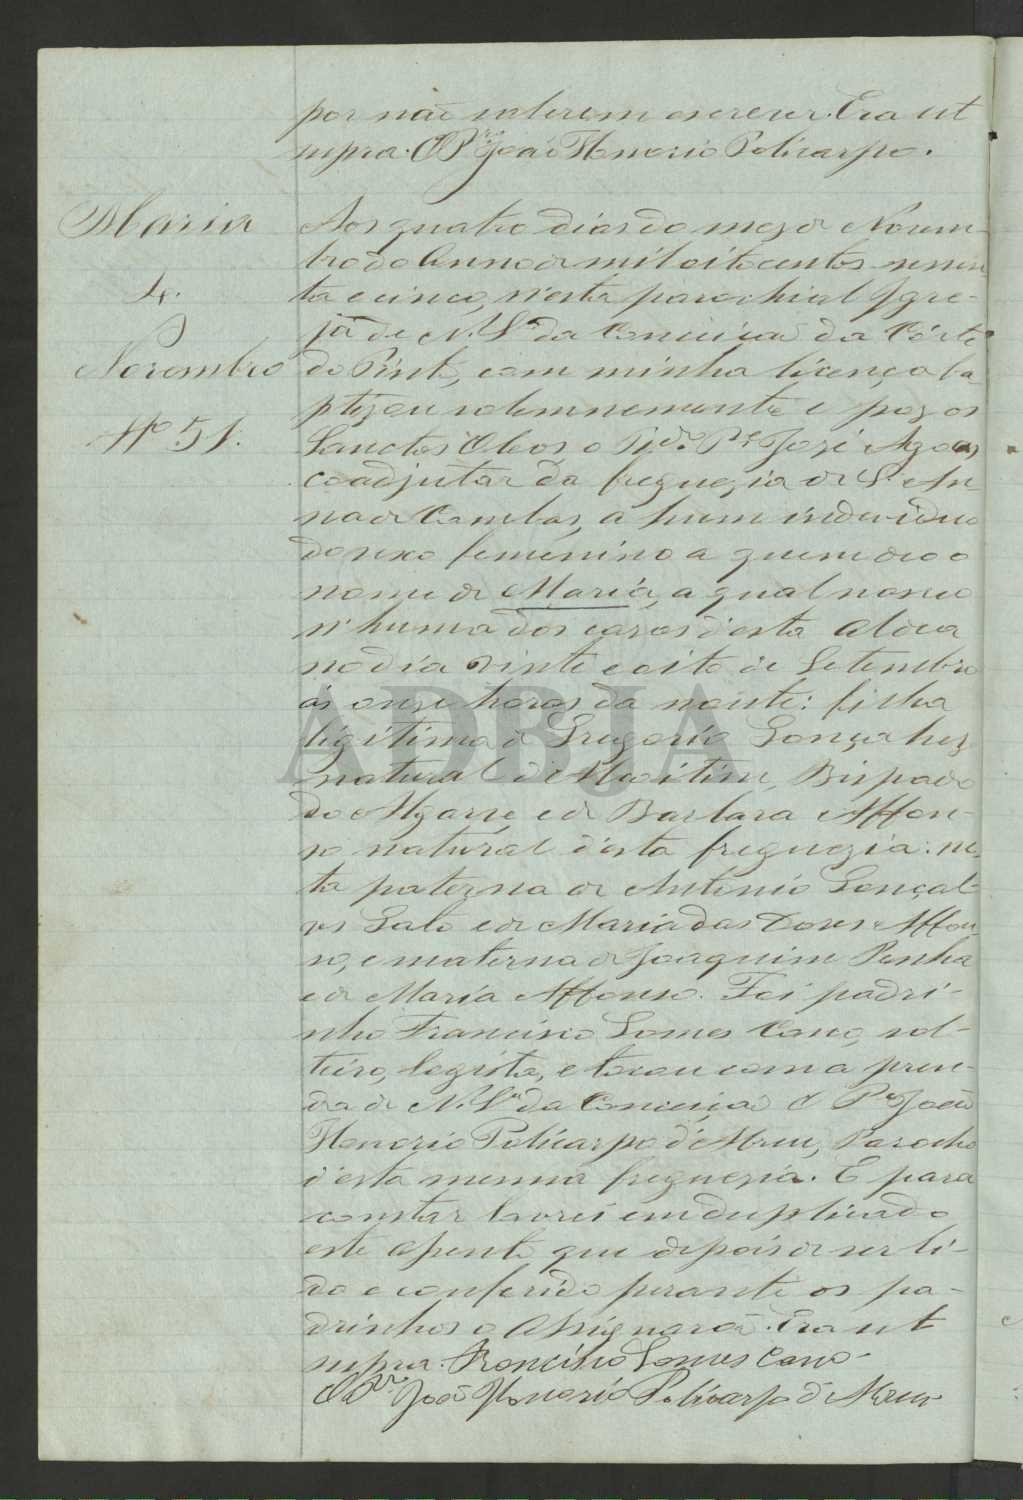 por não saberem escrever. Era ut
supra. O Pre João Honorio Policarpo.
Maria
4.
Novembro
Nº 51.
Aos quatro dias do mez de Novem-
bro do Anno de mil oitocentos sessen
ta e cinco, n'esta parochial Igre-
ja de N. Sra da Conceição da Côrte
do Pinto, com minha licença ba
ptizou solemnemente e poz os
Sanctos Oleos o Pe José
coadjutor da freguezia de S. An-
na de Cambas, a hum individuo
do sexo femenino a quem deo o
nome de Maria, a qual nasceo
n'huma das cazas d'esta Aldea
no dia vinte e oito de Setembro
ás onze horas da noute: filha
legitima de Gregorio Gonçalvez
natural d'Alcoitim, Bispado
do Algarve e de Barbara Affon-
so natural d'esta freguezia: ne-
ta paterna de Antonio Gonçal-
ves Gato e de Maria das Dores Affon-
so, e materna de Joaquim Penha
e de Maria Affonso. Foi padri-
nho Francisco Gomes Cano, sol-
teiro, logista, e tocou com a pren-
da de N. Sra da Conceição O Pe João
Honorio Policarpo d'Abreu, Parocho
d'esta mesma freguezia. E para
constar lavrei em duplicado
este Assento que depois de ser li-
do e conferido perante os pa-
drinhos o Assignarão. Era ut
supra. Francisco Gomes Cano.
O Pre João Honorio Policarpo d'Abreu
ADBJA